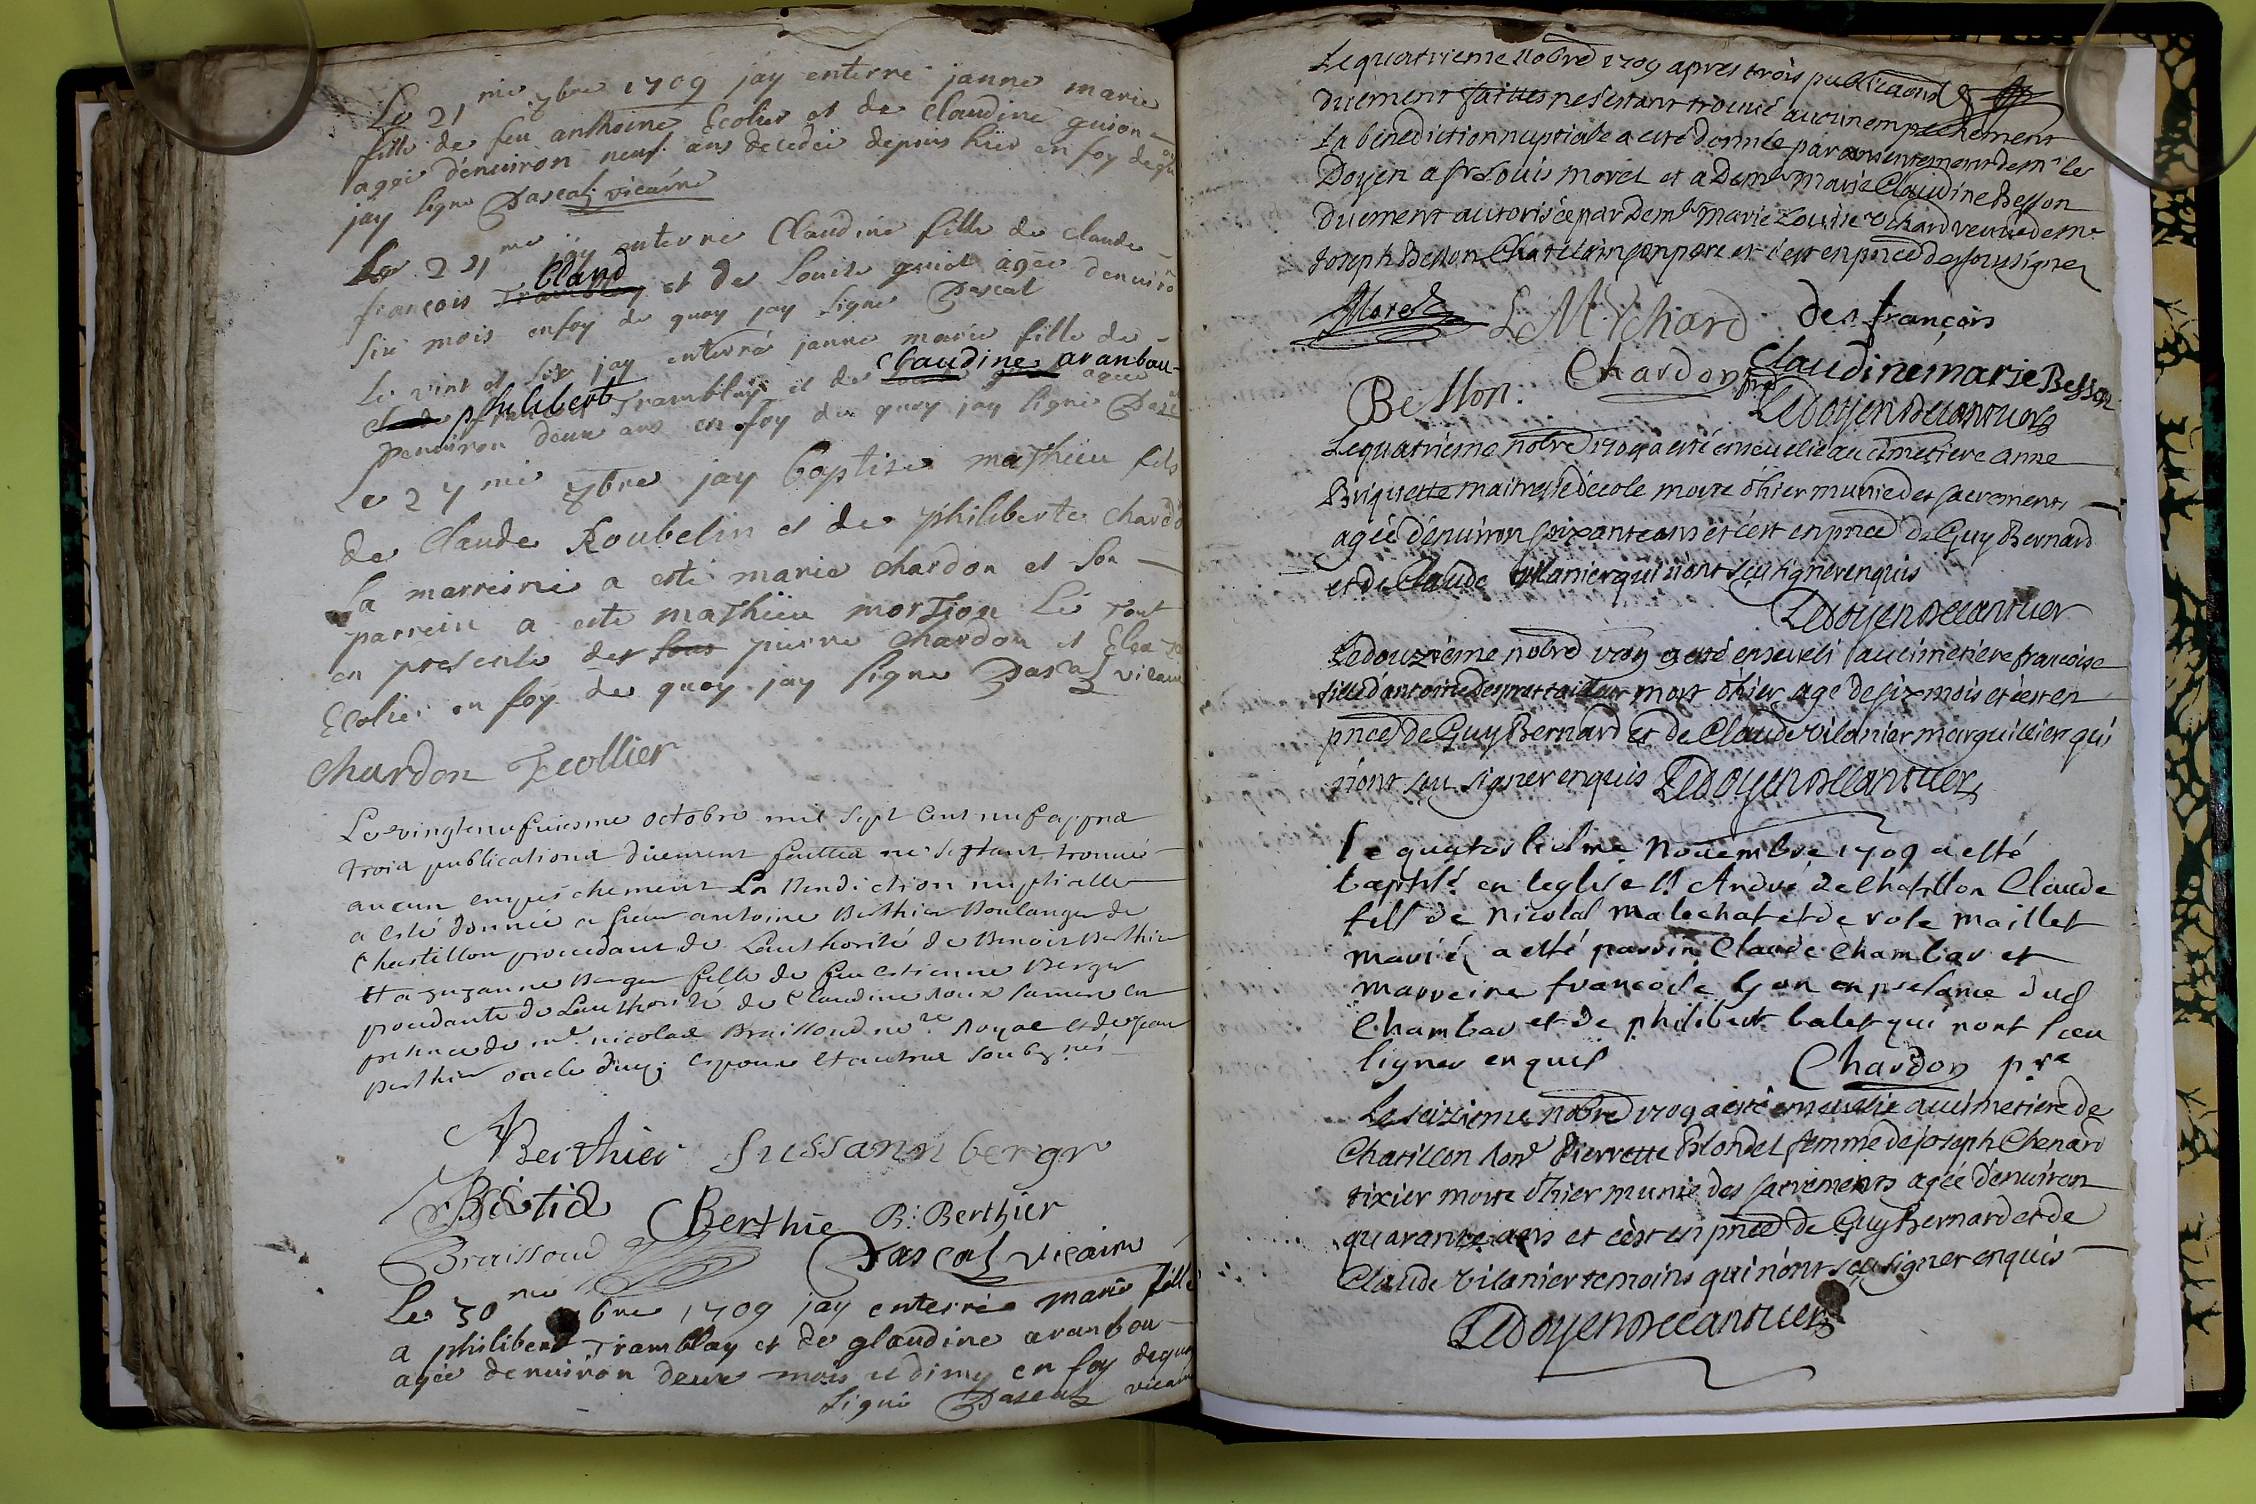 Le 21 me 7bre 1709 jay enterré janne marie
fille de feu anthoine Ecolier et de Claudine guion
agée dénuiron neuf ans decedée depuis hier en foy de quoy
jay signe Pascal vicaire
Le 21 me jay enterre Claudine fille de claude
françois Cland et de Louise guiot agee denuiro
six mois enfoy de quoy jay signe Pascal
Le vint et six jay enterré janne marie fille de
philibert Tramblay et de claudine aranbou-
agee
denuiron deux ans en foy de quoy jay signe Pascal
Le 27 me 7bre jay baptise mathieu fils
de Claude Roubelin et de philiberte chardo
sa marreine a esté marie chardon et son
parrein a este mathieu mortion Le tout
en presente de sous pierre chardon et
Ecolier en foy de quoy jay signe Pascal vicaire
chardon Ecollier
Le vingtenufuiesme octobre mil sept cent nuf apprea
troia publicationa duement faittea ne sestant trouué
aucun empeschement La Bendiction nuptialle
a esté donnée a sieur antoine Berthier Boulanger de
Chastillon procedant de Lauthorité de Benoist Berthier
Et a suzanne Berger fille de feu estienne Berger
procedante de Lauthorité de Claudine Roux sa mere en
presence de mr. nicolas Braissoud nre. Royal et de jean
Berthier oncle dud. espoux Et autres soubsignés
Berthier sussann bergr
Berthie B: Berthier
Braissoud Pascal vicaire
Le 30 me bre 1709 jay enterrée marie fille
a philibert Tramblay et de glaudine aranbou-
agée denuiron deux mois et dimy en foy dequoy
signé Pascal vicaire
Le quatrieme nobre 1709 apres trois publicaons
duement faittes ne sestant trouué aucun empechement
La bénédiction nuptiale a esté donnée par consentement de mr. le
Doyen a sr Louis morel et a Demle marie Claudine Besson
duement autorisée par Demle marie Louise Vchard veuve de mr.
Joseph Besson Chatelain son pere et c'est en pnce des soussignez
Morel L M Vchard des françois
Chardon pre Claudine marie Besson
Besson. Ledoyen Decantuer
Le quatriéme nobre 1709 a esté enseuelie au cimetiere anne
Briquette maitresse d'ecole morte d'hier munie des sacrements
agée dénuiron soixante ans et c'est en pnce de Guy Bernard
et de Claude Vilanier qui n'ont sçu signer enquis
Ledoyen Decantuer
Le douziéme nobre 1709 a esté enseveli au cimetiere francoise
fille d'antoine despras tailleur mort d'hier age de six mois et c'est en
pnce de Guy Bernard et de Claude Vilanier marguillier qui
n'ont sçu signer enquis Ledoyen Decantuer
Le quatorsiesme Nouembre 1709 a esté
baptisé en leglise St André de Chatillon Claude
fils de Nicolas malechat et de rose maillet
mariéz a esté parrin Claude Chambar et
marreine francoise Gon en presance dud
Chambar et de philibert balet qui nont sceu
signer enquis Chardon pre
Le seiziéme nobre 1709 a esté enseuelie au cimetiere de
Chatillon hone Pierrette Blondel femme de Joseph Chenard
tixier morte d'hier munie des sacrements agée dénuiron
quarante ans et cést en pnce de Guy Bernard et de
Claude Vilanier temoins qui n'ont sçu signer enquis
Ledoyen Decantuer